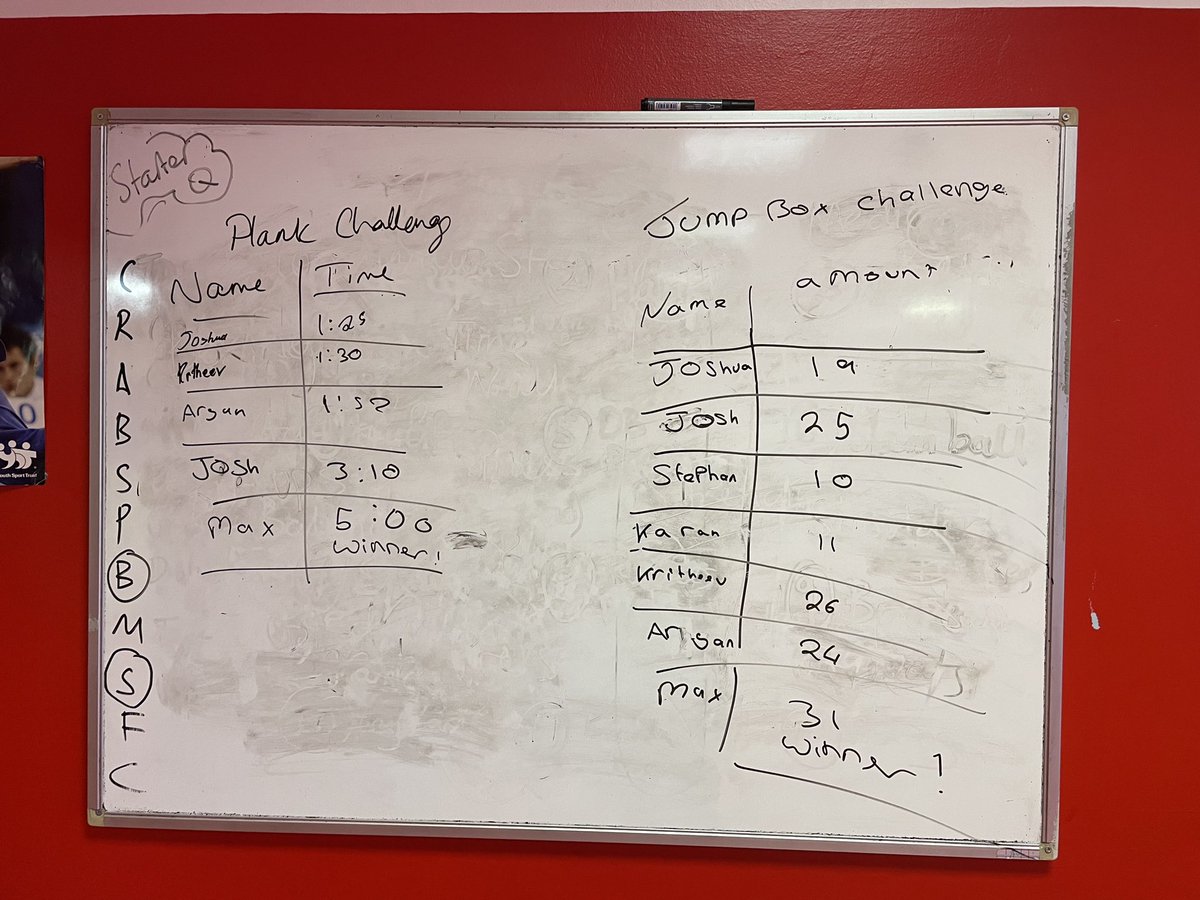 Starter
Q
Plank Challeng
Name Time
Joshua 1:25
Kritheev 1:30
Aryan 1:52
Josh 3:10
Max 5:00
Winner!
Jump Box challenge
Name amount
Joshua 19
Josh 25
Stephan 10
Karan 11
Kritheev 26
Aryan 24
Max 31
winner!
C
R
A
B
S
P
B
M
S
F
C
outh Sport Trust